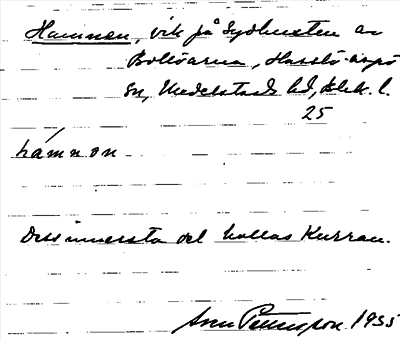 Hamnen, vik på Sydkusten av
Bollöarna, Hasslö
sn, Medelstads hd, Blek. l.
25
hámnon
Dess innersta del kallas Kurran.
Pettersson 1935